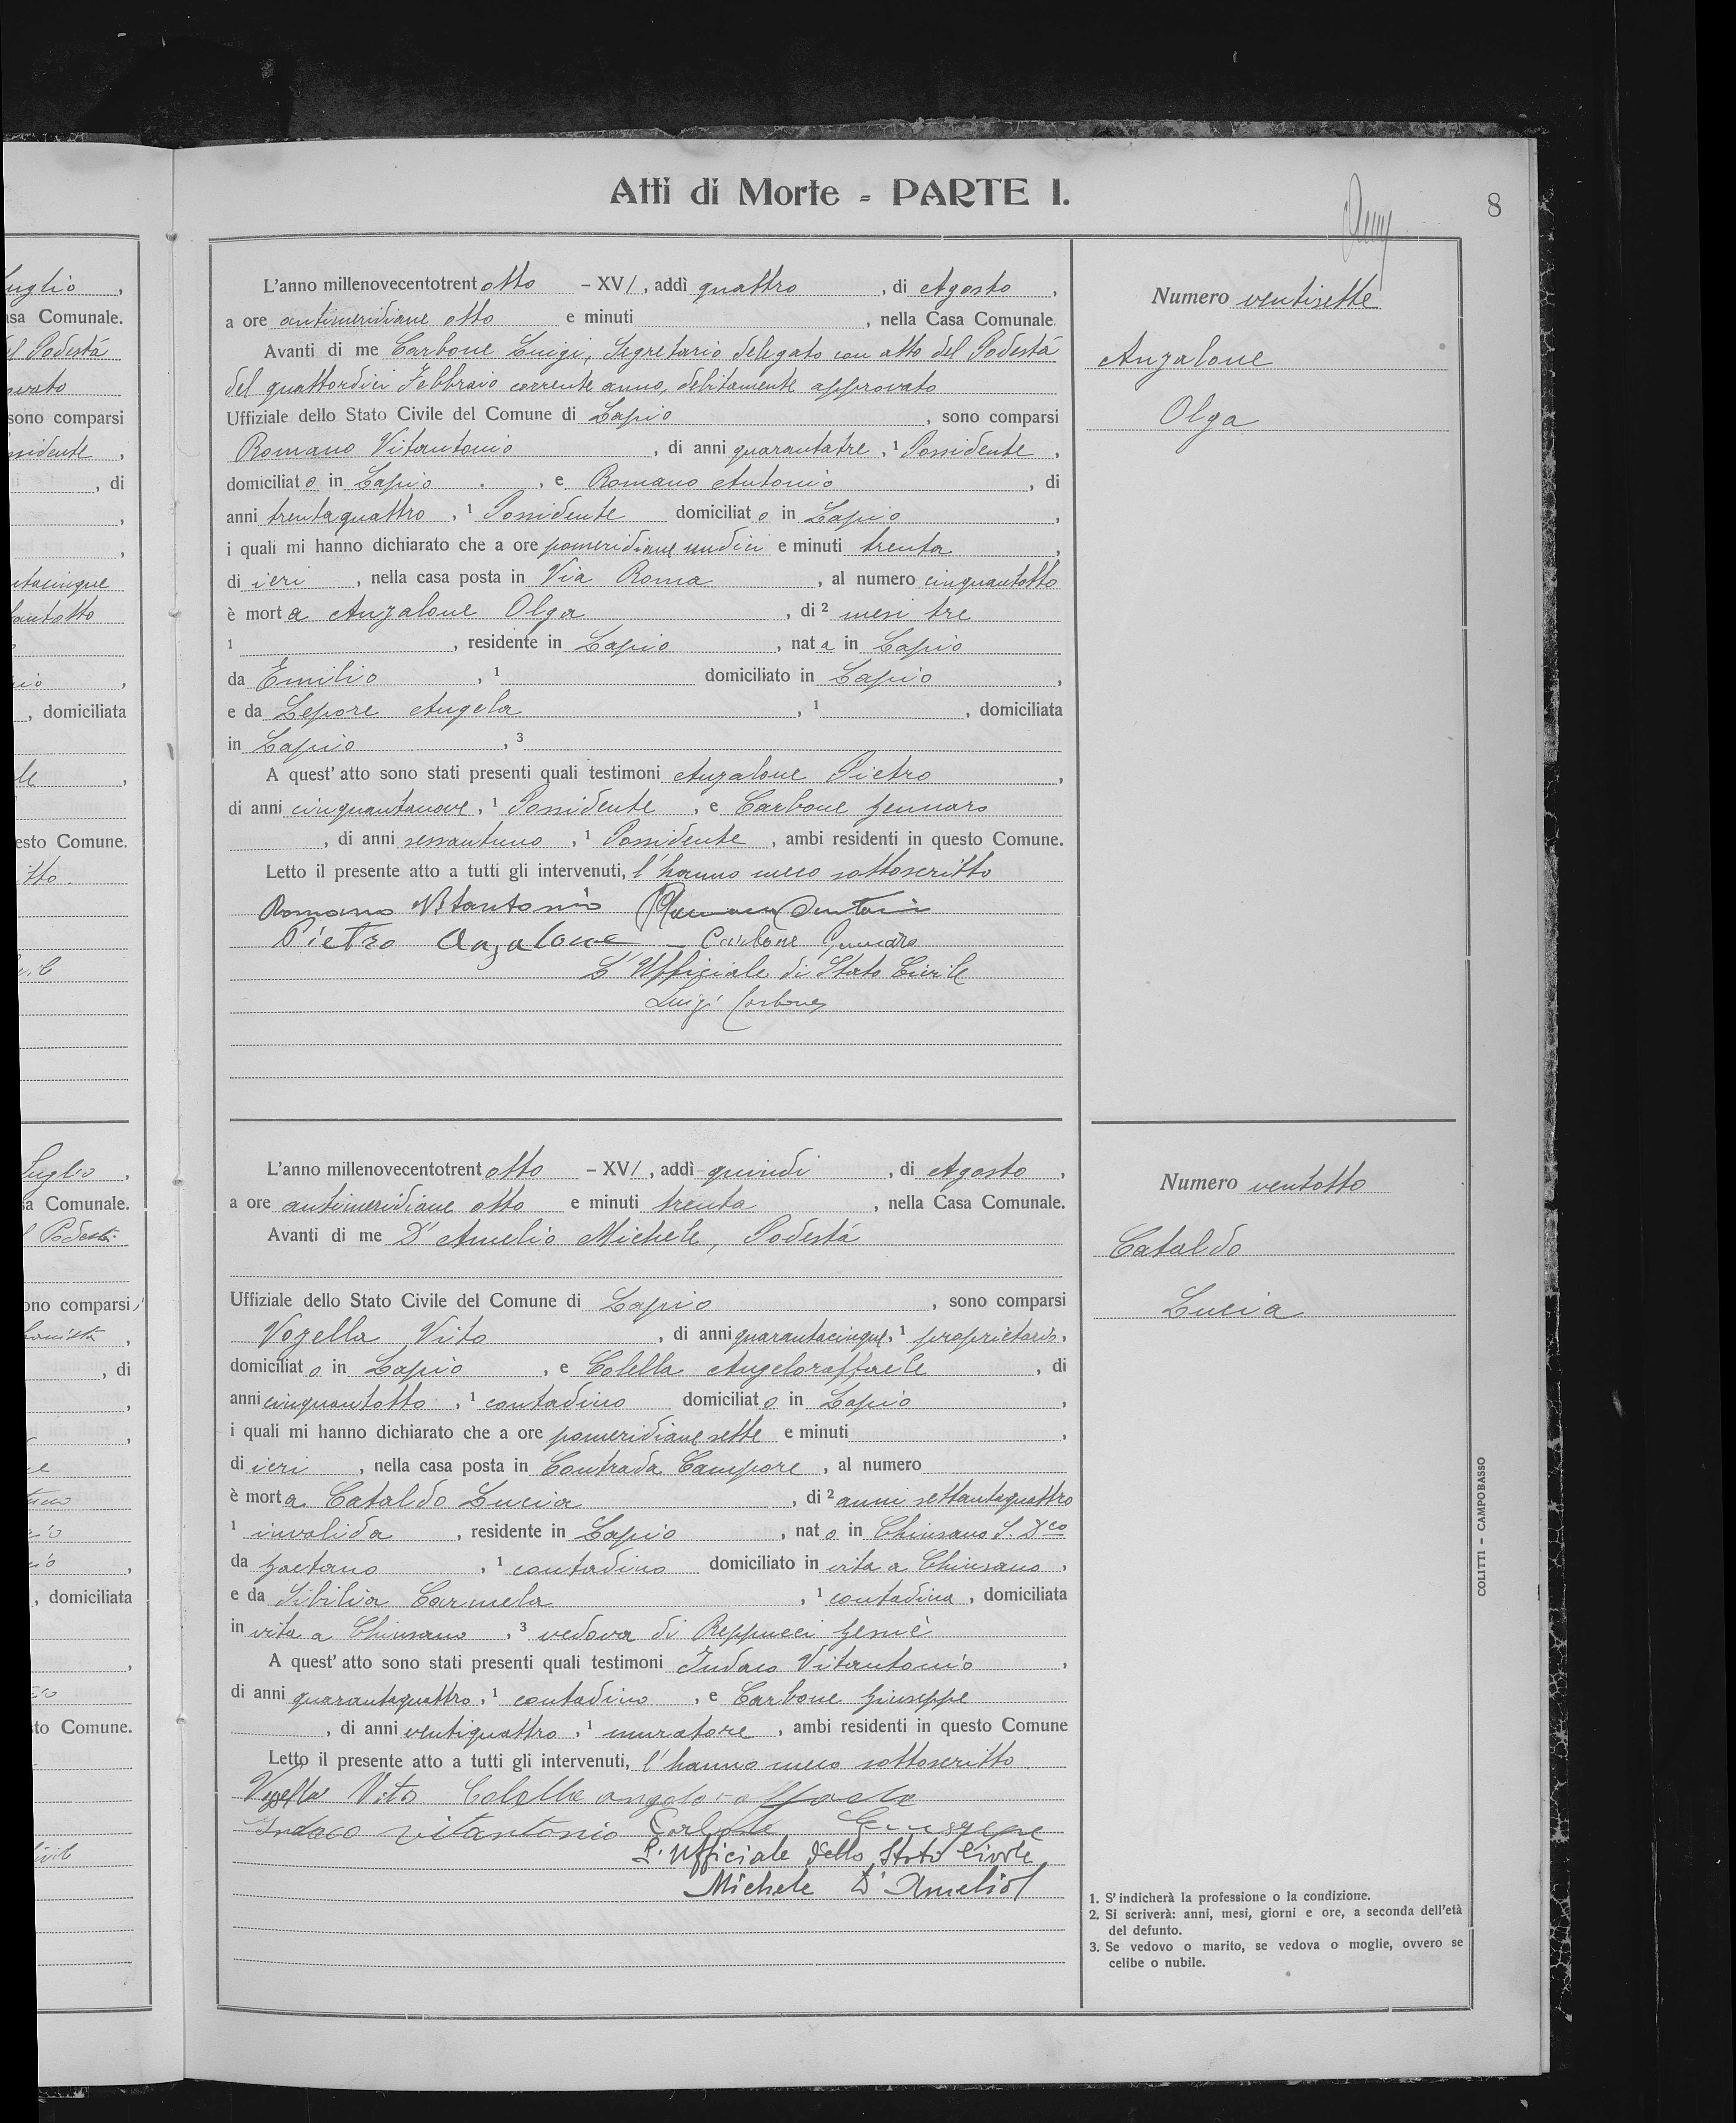 uglio,
asa Comunale.
el Podestà
ovato
sono comparsi
ssidente,
, di
,
,
ntacinque
tantotto
io,
, domiciliata
le,
esto Comune.
itto.
vile
Luglio,
sa Comunale.
l Podestà
ono comparsi
, di
,
,
,
, domiciliata
,
sto Comune.
ivile
Atti di Morte - PARTE I.
8
L'anno millenovecentotrent otto - XVI, addì quattro, di Agosto,
a ore antimeridiane otto e minuti , nella Casa Comunale.
Avanti di me Carbone Luigi, Segretario delegato con atto del Podestà
del quattordici Febbraio corrente anno, debitamente approvato
Uffiziale dello Stato Civile del Comune di Lapio, sono comparsi
Romano Vitantonio, di anni quarantatre, 1 Possidente,
domiciliato in Lapio, e Romano Antonio, di
anni trentaquattro, 1 Possidente domiciliato in Lapio,
i quali mi hanno dichiarato che a ore pomeridiane undici e minuti trenta,
di ieri, nella casa posta in Via Roma, al numero cinquantotto
è morta Anzalone Olga, di 2 mesi tre
1 , residente in Lapio, nata in Lapio
da Emilio, 1 domiciliato in Lapio,
e da Lepore Angela, 1 , domiciliata
in Lapio, 3
A quest'atto sono stati presenti quali testimoni Anzalone Pietro,
di anni cinquantanove, 1 Possidente, e Carbone Gennaro
, di anni sessantuno, 1 Possidente, ambi residenti in questo Comune.
Letto il presente atto a tutti gli intervenuti, l'hanno meco sottoscritto
Romano Vitantonio Romano Antonio
Pietro Anzalone - Carbone Gennaro
L'Ufficiale di Stato Civile
Luigi Carbone
Numero ventisette
Anzalone
Olga
L'anno millenovecentotrent otto - XVI, addì quindi, di Agosto,
a ore antimeridiane otto e minuti trenta, nella Casa Comunale.
Avanti di me D'Amelio Michele, Podestà
Uffiziale dello Stato Civile del Comune di Lapio, sono comparsi
Vozella Vito, di anni quarantacinque, 1 proprietario,
domiciliato in Lapio, e Colella Angeloraffaele, di
anni cinquantotto, 1 contadino domiciliato in Lapio,
i quali mi hanno dichiarato che a ore pomeridiane sette e minuti ,
di ieri, nella casa posta in Contrada Campore, al numero
è morta Cataldo Lucia, di 2 anni settantaquattro
1 invalida, residente in Lapio, nato in Chiusano S. Dco
da Gaetano, 1 contadino domiciliato in vita a Chiusano,
e da Sibilia Carmela, 1 contadina, domiciliata
in vita a Chiusano, 3 vedova di Reppucci Gesuè
A quest'atto sono stati presenti quali testimoni Indaco Vitantonio,
di anni quarantaquattro, 1 contadino, e Carbone Giuseppe
, di anni ventiquattro, 1 muratore, ambi residenti in questo Comune
Letto il presente atto a tutti gli intervenuti, l'hanno meco sottoscritto.
Vozella Vito Colella angeloraffaele
Indaco vitantonio Carbone Giuseppe
L'Ufficiale dello Stato Civile
Michele D'Amelio
Numero ventotto
Cataldo
Lucia
1. S'indicherà la professione o la condizione.
2. Si scriverà: anni, mesi, giorni e ore, a seconda dell'età
del defunto.
3. Se vedovo o marito, se vedova o moglie, ovvero se
celibe o nubile.
COLITTI - CAMPOBASSO